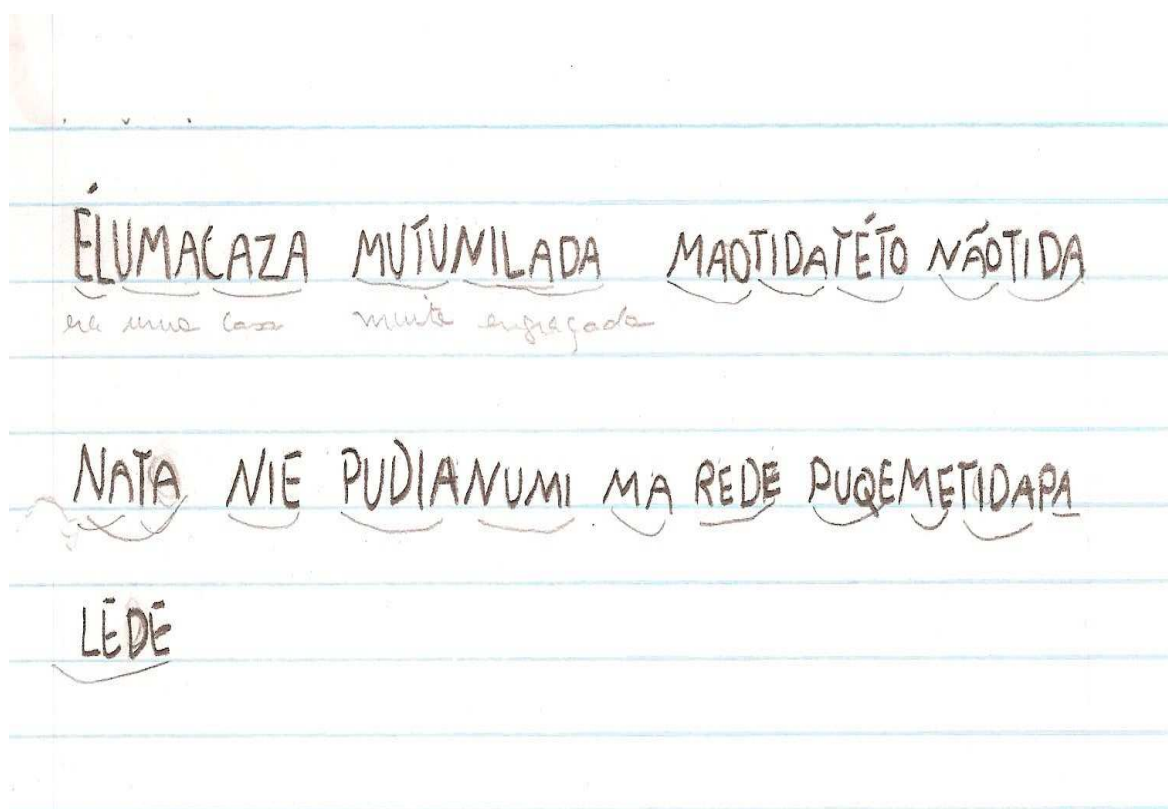 ÉLUMACAZA MUTUNILADA MAOTIDATÉTO NÃOTIDA
era uma casa muito engraçada
NATA NIE PUDIANUMI MA REDE PUQEMETIDAPA
LEDE